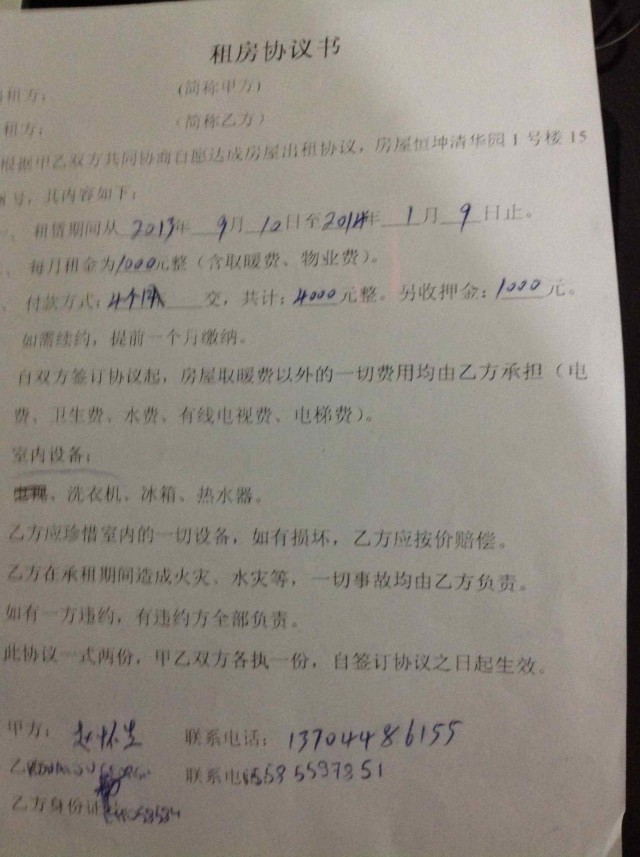 租房协议书
租方： (简称甲方)
租方： （简称乙方）
根据甲乙双方共同协商自愿达成房屋出租协议，房屋恒坤清华园1号楼15
号，其内容如下：
、租赁期间从2013年9月10日至2014年1月9日止。
、每月租金为1000元整（含取暖费、物业费）。
、付款方式：4个月交，共计：4000元整。另收押金：1000元。
如需续约，提前一个月缴纳。
自双方签订协议起，房屋取暖费以外的一切费用均由乙方承担（电
费、卫生费、水费、有线电视费、电梯费）。
室内设备：
、洗衣机、冰箱、热水器。
乙方应珍惜室内的一切设备，如有损坏，乙方应按价赔偿。
乙方在承租期间造成火灾、水灾等，一切事故均由乙方负责。
如有一方违约，有违约方全部负责。
此协议一式两份，甲乙双方各执一份，自签订协议之日起生效。
甲方：赵怀 联系电话：13704486155
乙 联系电
乙方身份证